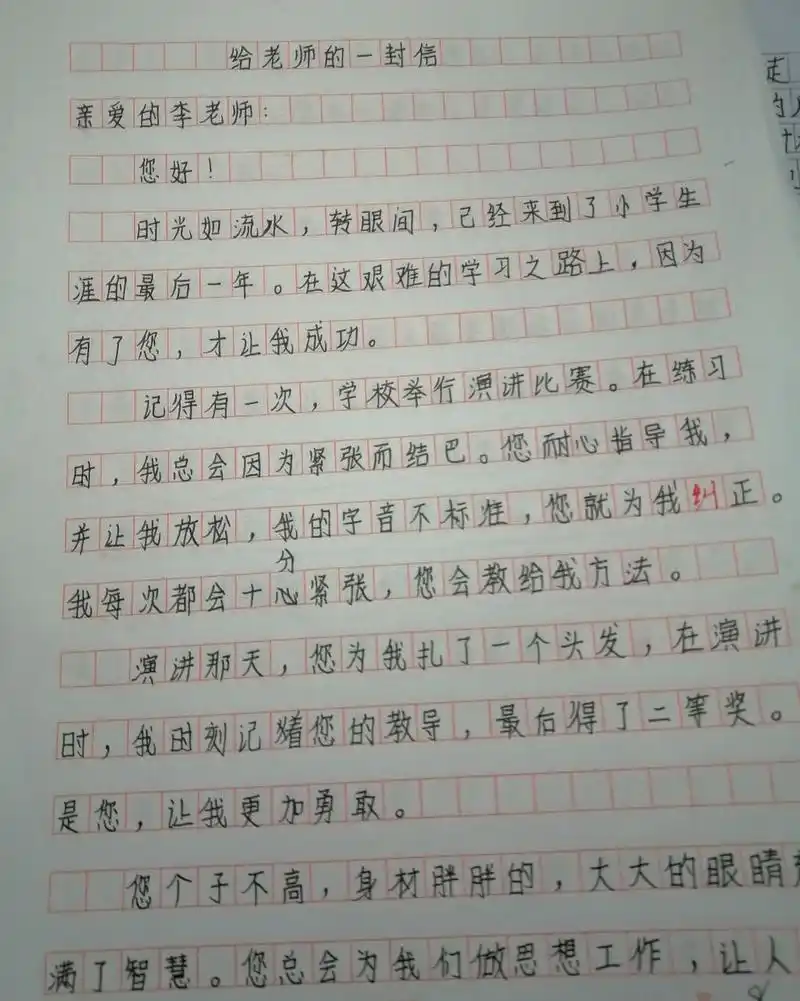 给老师的一封信
亲爱的李老师：
您好！
时光如流水，转眼间，已经来到了小学生
涯的最后一年。在这艰难的学习之路上，因为
有了您，才让我成功。
记得有一次，学校举行演讲比赛。在练习
时，我总会因为紧张而结巴。您耐心指导我，
并让我放松，我的字音不标准，您就为我纠正。
分
我每次都会十心紧张，您会教给我方法。
演讲那天，您为我扎了一个头发，在演讲
时，我时刻记着您的教导，最后得了二等奖。
是您，让我更加勇取。
您个子不高，身材胖胖的，大大的眼睛
满了智慧。您总会为我们做思想工作，让人